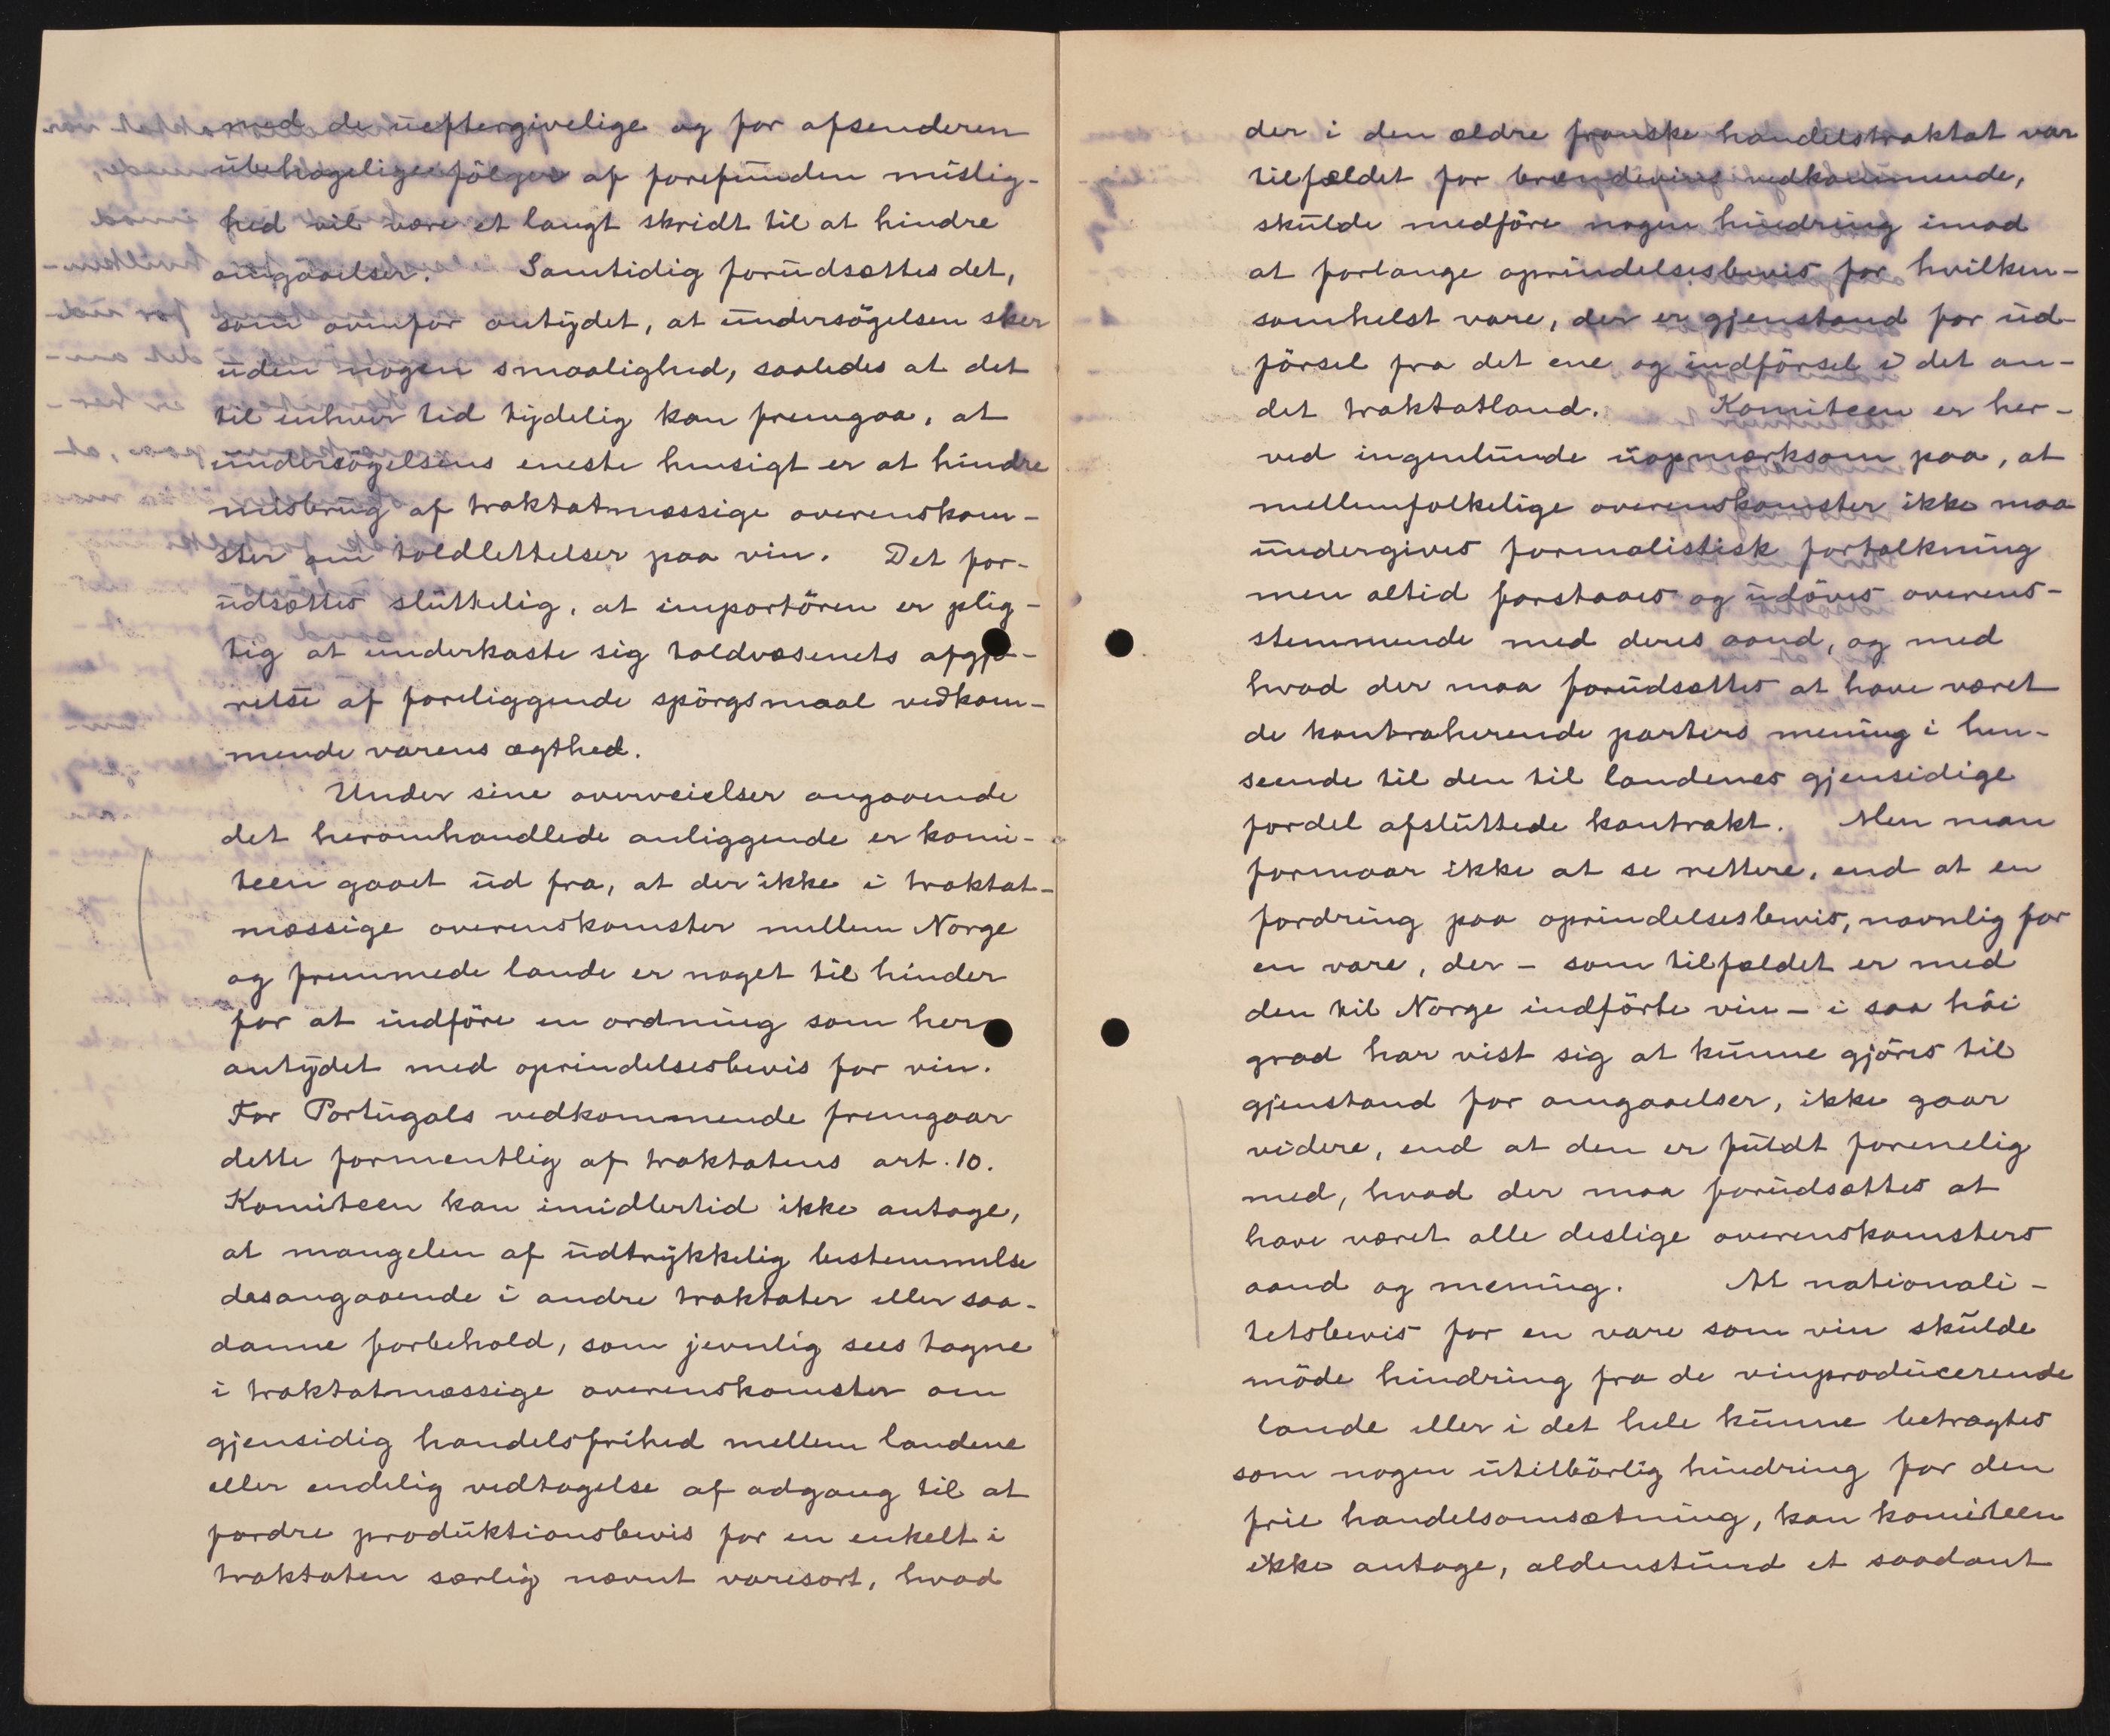 med de ueftergivelige og for afsenderen
ubehagelige følger af forefunden mislig-
hed vil være et langt skridt til at hindre
omgaaelser. Samtidig forudsættes det,
som ovenfor antydet, at undersögelsen sker
uden nogen smaalighed, saaledes at det
til enhver tid tydelig kan fremgaa, at
undersögelsens eneste hensigt er at hindre
misbrug af traktatmæssige overenskom-
ster om toldlettelser paa vin. Det for-
udsættes sluttelig, at importören er plig-
tig at underkaste sig toldvæsenets afgjö-
relse af foreliggende spörgsmaal vedkom-
mende varens ægthed.
Under sine overveielser angaaende
det heromhandlede anliggende er komi-
teen gaaet ud fra, at der ikke i traktat-
mæssige overenskomster mellem Norge
og fremmede lande er noget til hinder
for at indföre en ordning som her
antydet med oprindelsesbevis for vin.
For Portugals vedkommende fremgaar
dette formentlig af traktatens art. 10.
Komiteen kan imidlertid ikke antage,
at mangelen af udtrykkelig bestemmelse
desangaaende i andre traktater eller saa-
danne forbehold, som jevnlig sees tagne
i traktatmæssige overenskomster om
gjensidig handelsfrihed mellem landene
eller endelig vedtagelse af adgang til at
fordre produktionsbevis for en enkelt i
traktaten særlig nævnt varesort, hvad
der i den ældre franske handelstraktat var
tilfældet for brændevins vedkommende,
skulde medföre nogen hindring imod
at forlange oprindelsesbevis for hvilken-
somhelst vare, der er gjenstand for ud-
försel fra det ene og indförsel i det an-
det traktatland. Komiteen er her-
ved ingenlunde uopmærksom paa, at
mellemfolkelige overenskomster ikke maa
undergives formalistisk fortolkning
men altid forstaaes og udöves overens-
stemmende med deres aand, og med
hvad der maa forudsættes at have været
de kontraherende parters mening i hen-
seende til den til landenes gjensidige
fordel afsluttede kontrakt. Men man
formaar ikke at se rettere, end at en
fordring paa oprindelsesbevis, navnlig for
en vare, der - som tilfældet er med
den til Norge indförte vin - i saa höi
grad har vist sig at kunne gjöres til
gjenstand for omgaaelser, ikke gaar
videre, end at den er fuldt forenelig
med, hvad der maa forudsættes at
have været alle deslige overenskomsters
aand og mening. At nationali-
tetsbevis for en vare som vin skulde
möde hindring fra de vinproducerende
lande eller i det hele kunne betragtes
som nogen utilbörlig hindring for den
frie handelsomsætning, kan komiteen
ikke antage, aldenstund et saadant